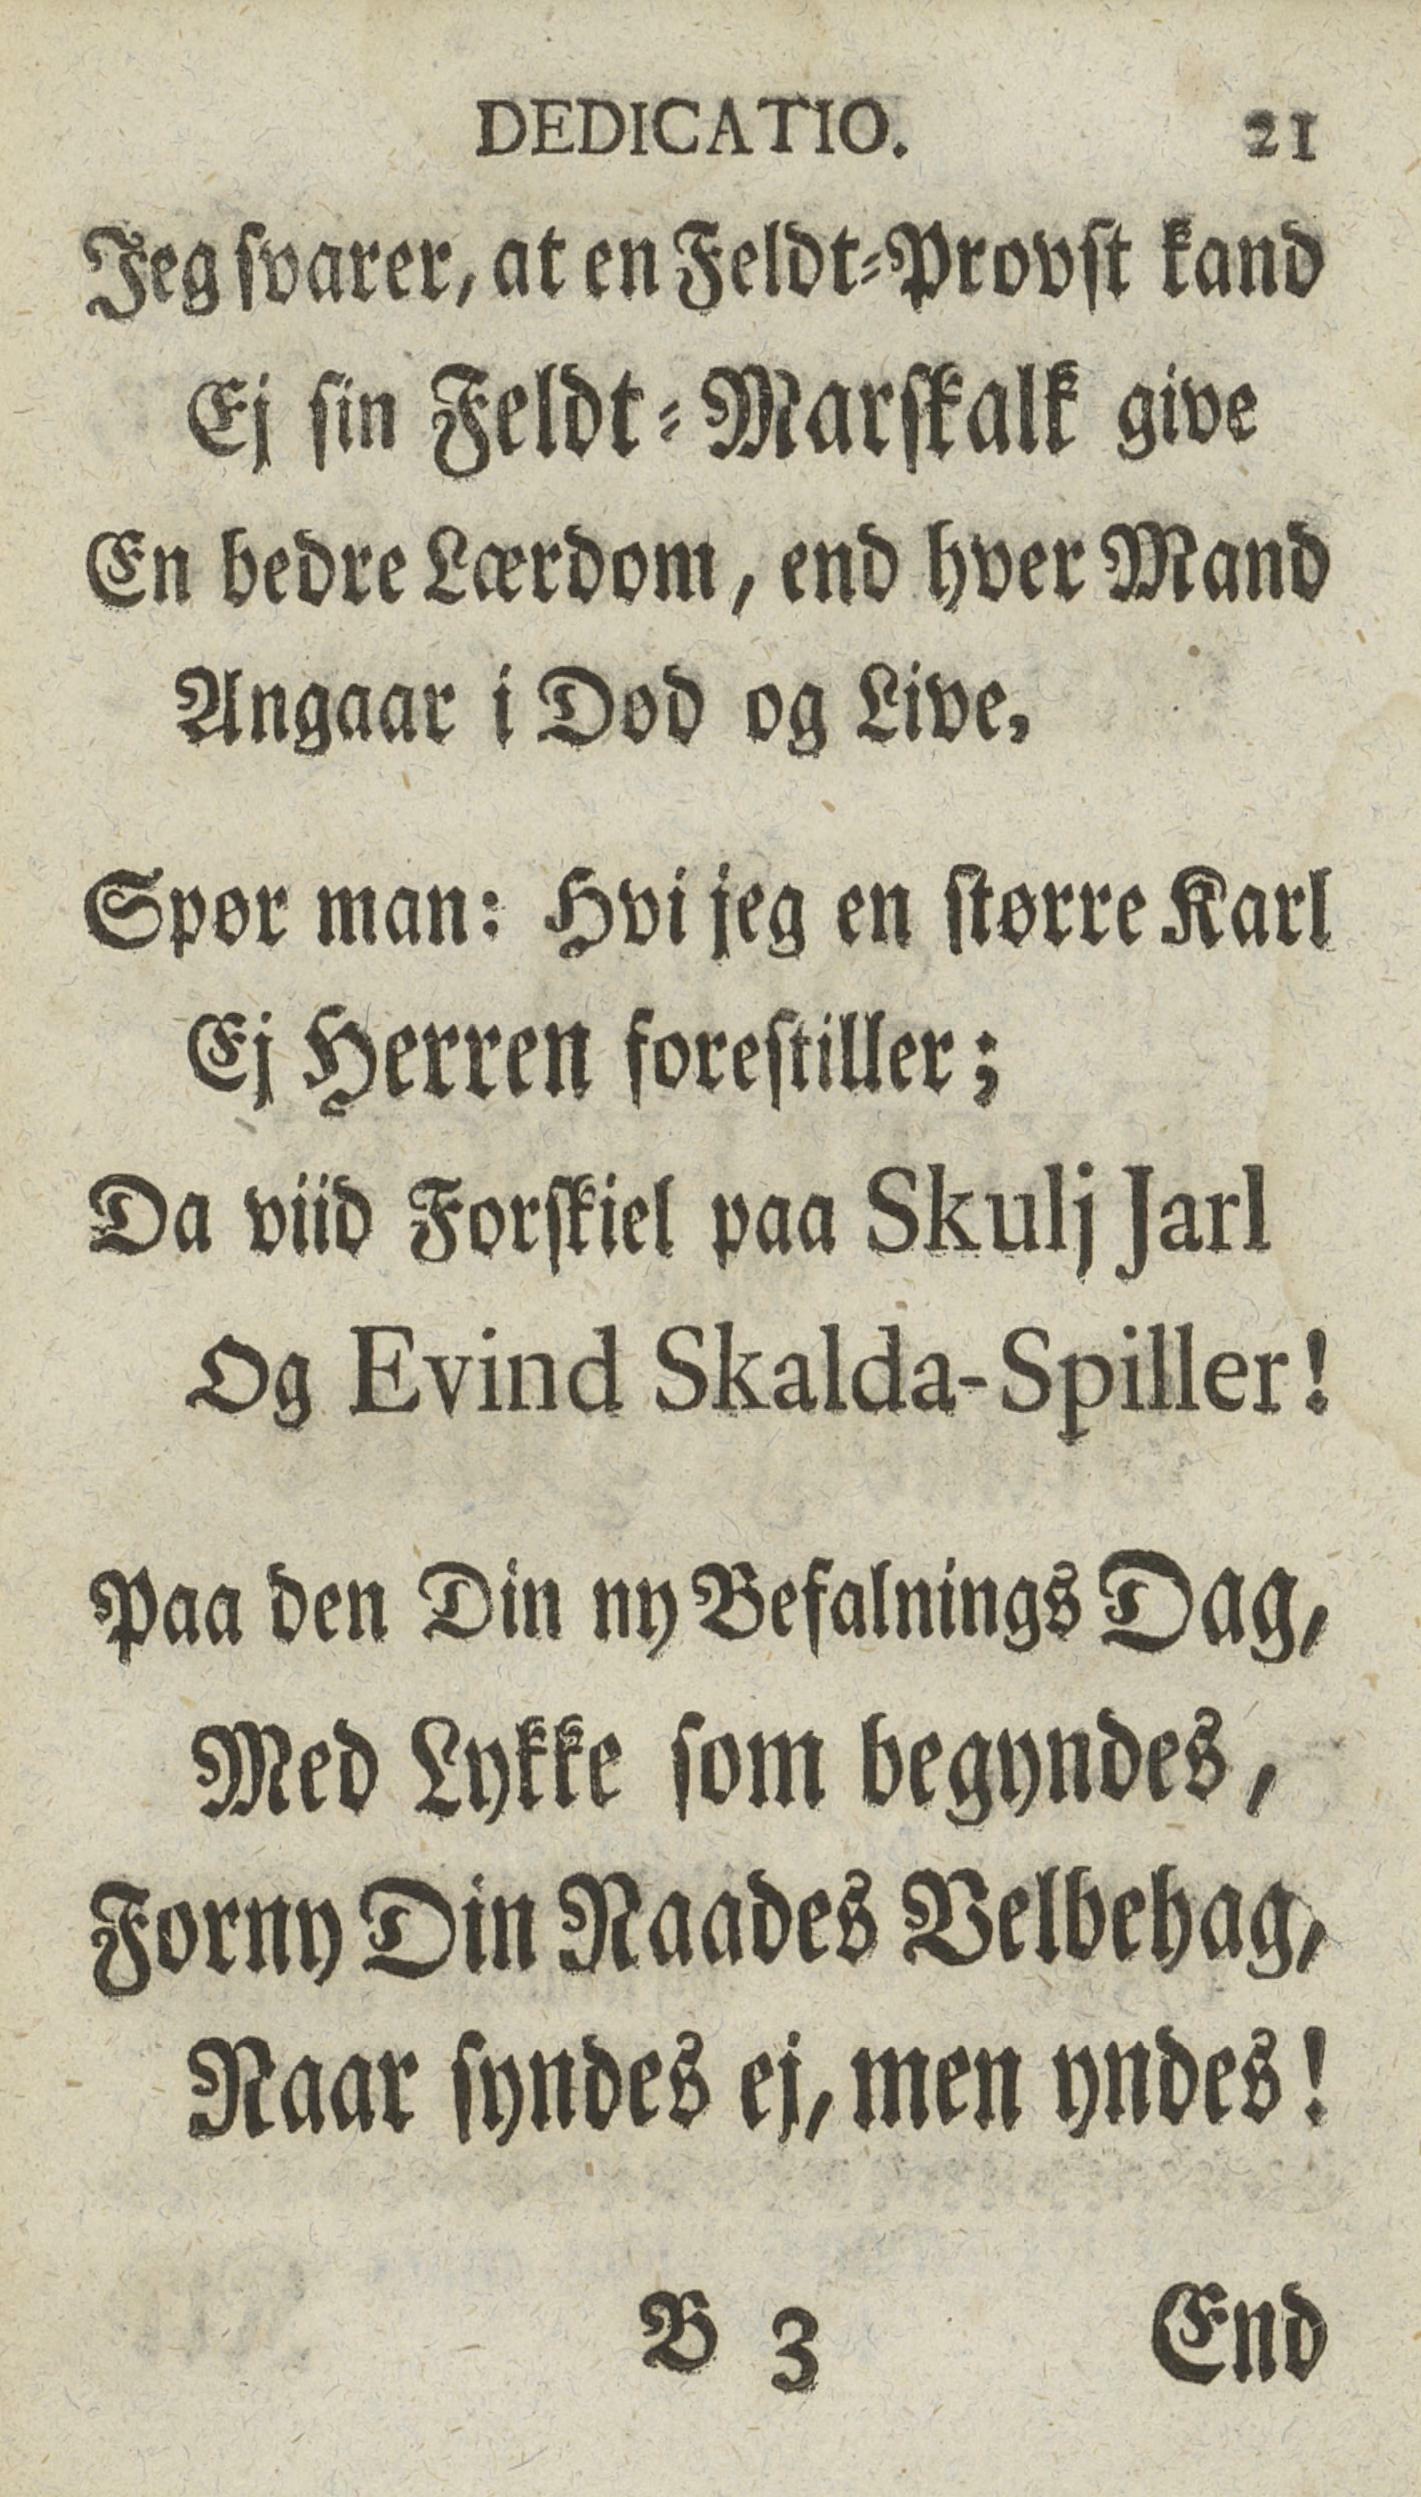 DEDICATIO. 21
Jeg svarer, at en Feldt-Provst kand
Ej sin Feldt-Marskalk give
En bedre Lærdom, end hver Mand
Angaar i Død og Live,
Spør man: Hvi jeg en større Karl
Ej Herren forestiller;
Da viid Forskiel paa Skulj Jarl
Og Evind Skalda-Spiller!
Paa den Din ny Befalnings Dag,
Med Lykke som begyndes,
Forny Din Naades Velbehag,
Naar syndes ej, men yndes!
B 3 End